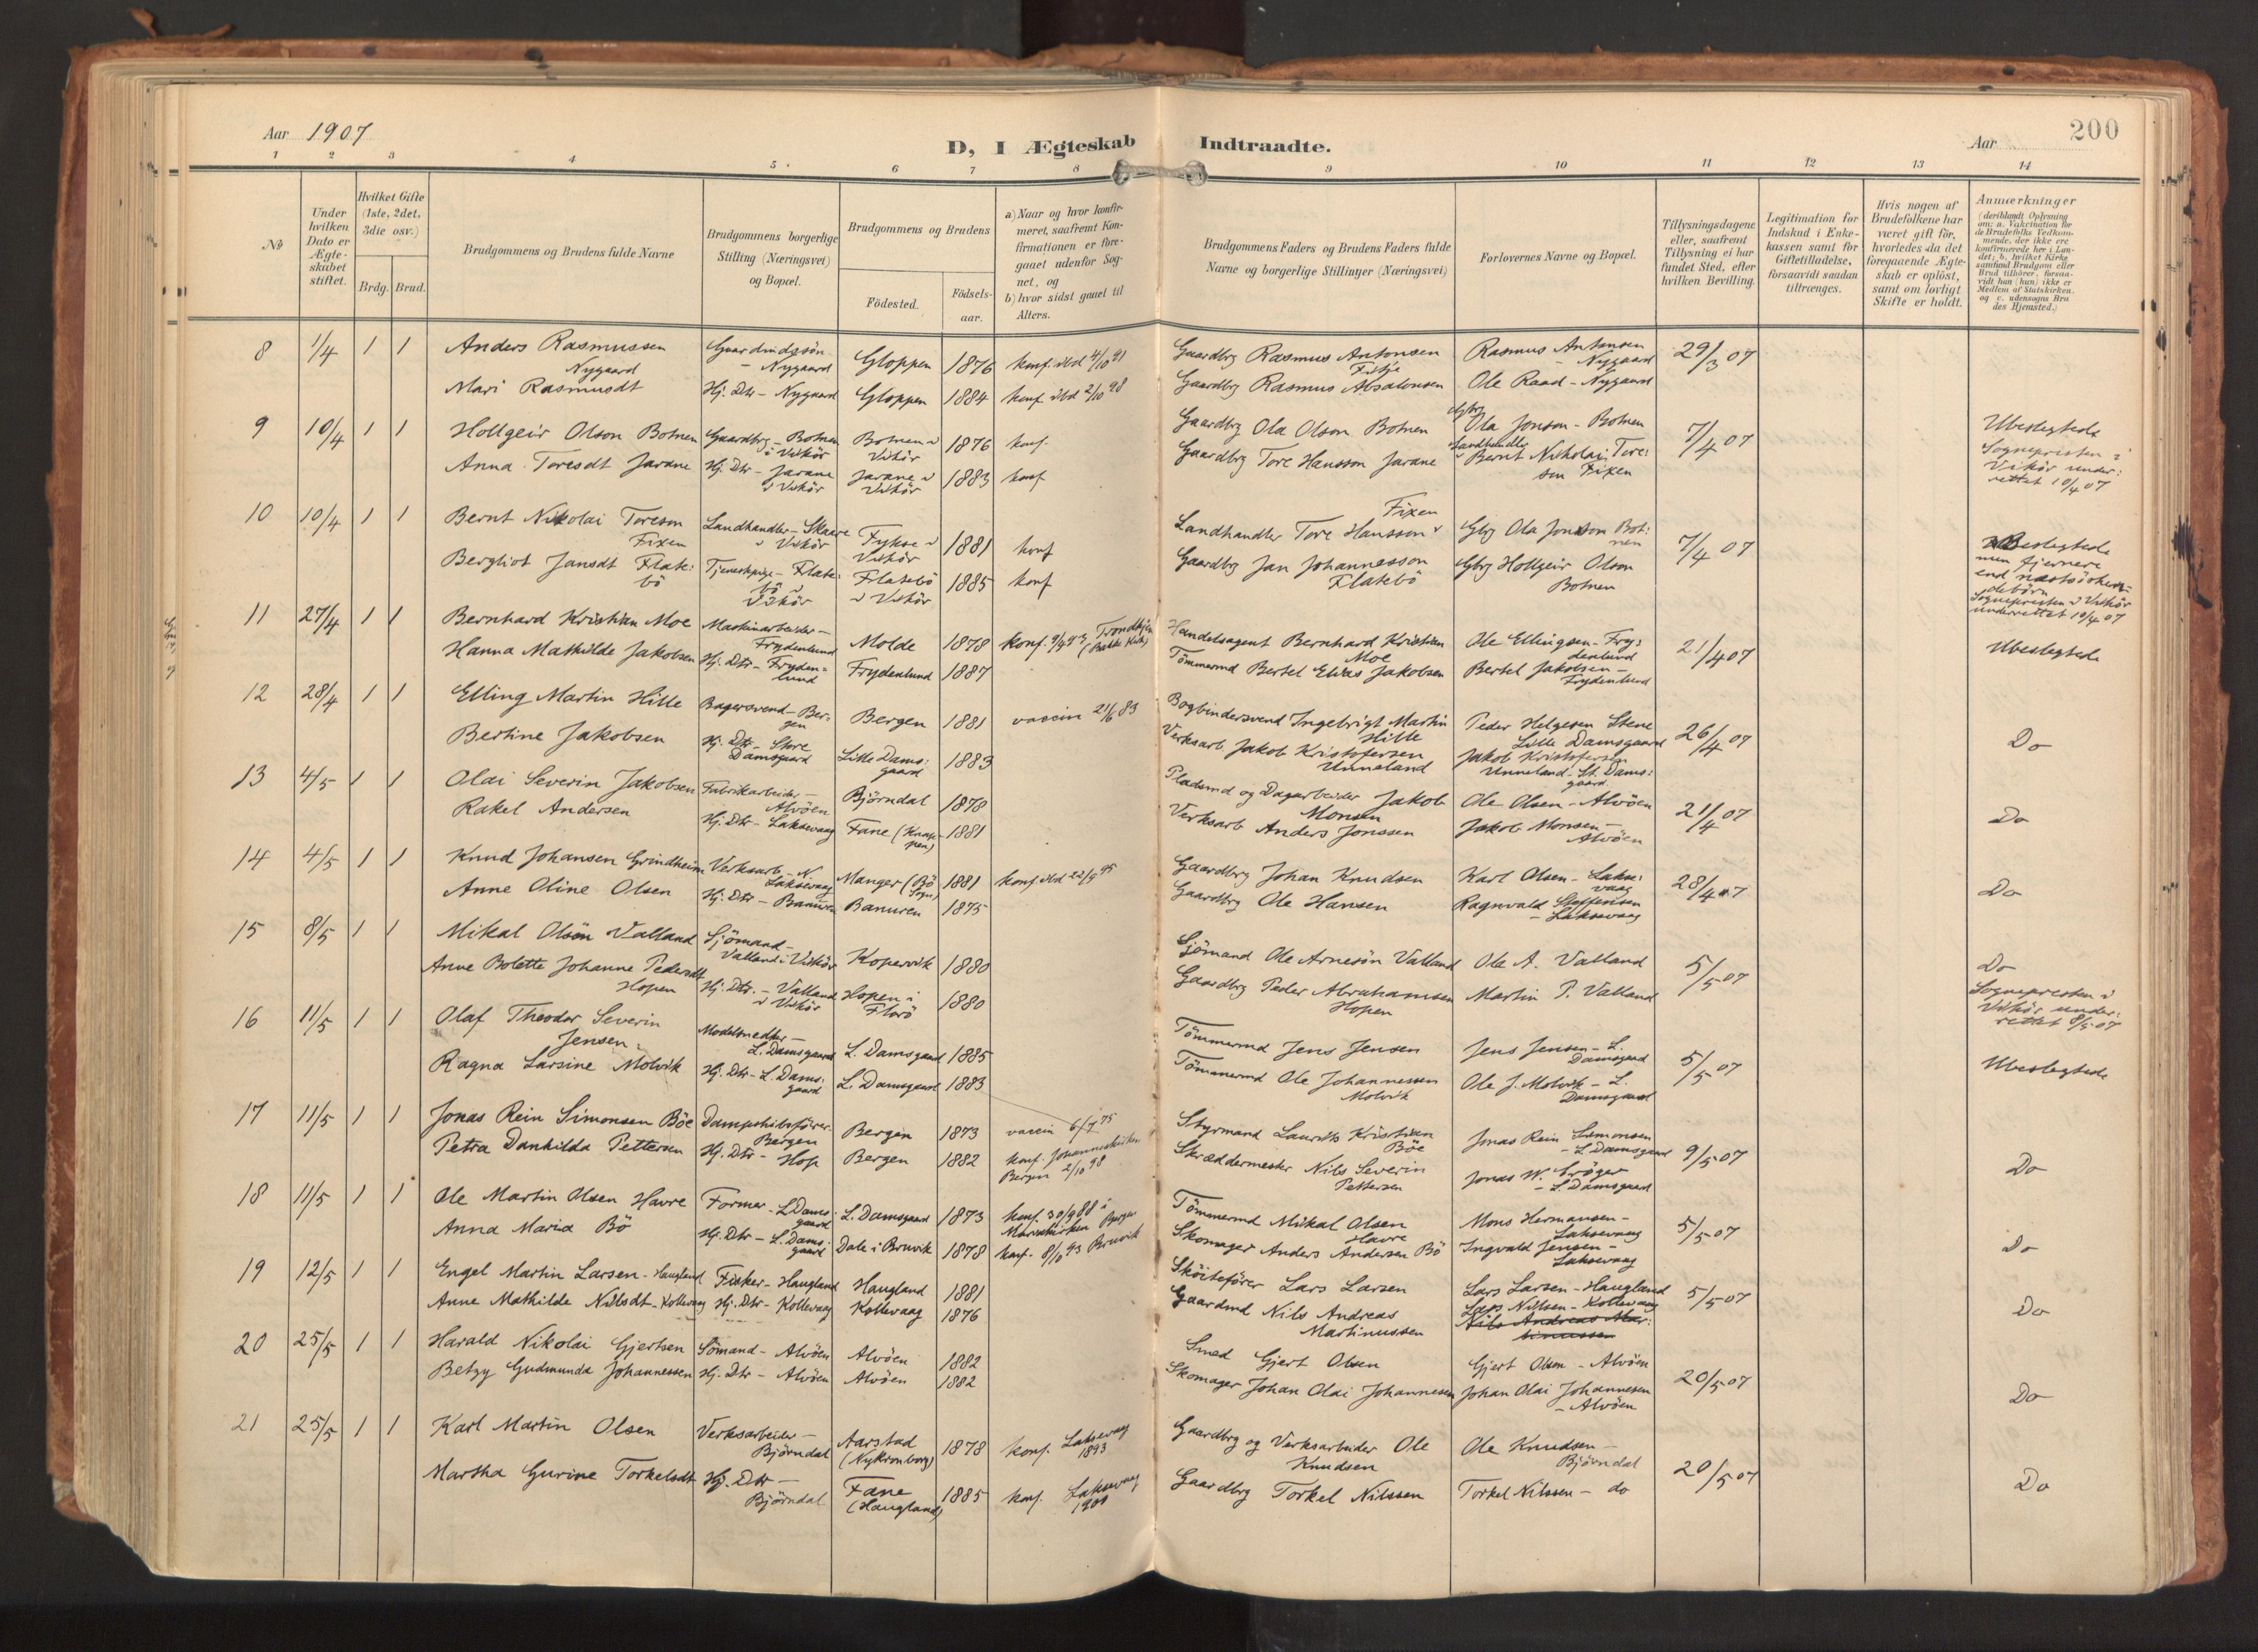 Aar 1907
D, I Ægteskab Indtraadte.
Aar
200
1 2 3 4 5 6 7 8 9 10 11 12 13 14
No
Under hvilken Dato er Ægteskabet stiftet.
Hvilket Gifte (1ste, 2det, 3die osv.)
Brdg. Brud.
Brudgommens og Brudens fulde Navne
Brudgommens borgerlige Stilling (Næringsvei) og Bopæl.
Brudgommens og Brudens
Födested.
Födselsaar.
a) Naar og hvor konfirmeret, saafremt Konfirmationen er foregaaet udenfor Sognet, og
b) hvor sidst gaaet til Alters.
Brudgommens Faders og Brudens Faders fulde Navne og borgerlige Stillinger (Næringsvei)
Forlovernes Navne og Bopæl.
Tillysningsdagene eller, saafremt Tillysning ei har fundet Sted, efter hvilken Bevilling.
Legitimation for Indskud i Enkekassen samt for Giftetilladelse, forsaavidt saadan tiltrænges.
Hvis nogen af Brudefolkene har været gift för, hvorledes da det foregaaende Ægteskab er oplöst, samt om lovligt Skifte er holdt.
Anmærkninger (deriblandt Oplysning om: a. Vakcination for de Brudefolks Vedkommende, der ikke ere konfirmerede her i Landet; b. hvilket Kirkesamfund Brudgom eller Brud tilhörer, forsaavidt han (hun) ikke er Medlem af Statskirken, og c. udensogns Brudes Hjemsted.)
8 1/4 1 1 Anders Rasmussen Nygaard Gaardmdgsön - Nygaard Gloppen 1876 konf. ibd 4/10 91 Gaardbrg Rasmus Antonsen Fitje Rasmus Antonsen - Nygaard 29/3 07
Mari Rasmusdt Hj. Dtr - Nygaard Gloppen 1884 konf ibd 2/10 98 Gaardbrg Rasmus Absalonsen Ole Raad - Nygaard
9 10/4 1 1 Hollgeir Olson Botnen Gaardbrg - Botnen i Vikör Botnen i Vikör 1876 konf. Gaardbrg Ola Olson Botnen Gbrg Ola Jonson - Botnen 7/4 07 Ubeslegtede
Anna Toresdt Jarane Hj. Dtr - Jarane i Vikör Jarane i Vikör 1883 konf Gaardbrg Tore Hansson Jarane Landhandler Bernt Nikolai Toresen Fixen Sognepresten i Vikör underrettet 10/4 07
10 10/4 1 1 Bernt Nikolai Toreson Fixen Landhandler - Skaare i Vikör Fykse i Vikör 1881 konf Landhandler Tore Hansson Fixen Gbrg Ola Jonson Botnen 7/4 07 Beslegtede men fjernere end næstsöskendebörn
Bergliot Jansdt Flatebö Tjenestepige - Flatebö i Vikör Flatebö i Vikör 1885 konf Gaardbrg Jan Johannesson Flatebö Gbrg Hollgeir Olson Botnen Sognepresten i Vikör underrettet 10/4 07
11 27/4 1 1 Bernhard Kristian Moe Maskinarbeider - Frydenlund Molde 1878 konf. Trondhjem (Bakke Kirke) Handelsagent Bernhard Kristian Moe Ole Ellingsen - Frydenlund 21/4 07 Ubeslegtede
Hanna Mathilde Jakobsen Hj. Dtr - Frydenlund Frydenlund 1887 Tömmermd Bertel Elias Jakobsen Bertel Jakobsen - Frydenlund
12 28/4 1 1 Elling Martin Hille Bagersvend - Bergen Bergen 1881 vaccin 21/6 83 Bogbindersvend Ingebrigt Martin Hille Peder Helgesen Stene Lille Damsgaard 26/4 07 Do
Bertine Jakobsen Hj. Dtr - Store Damsgaard Lille Damsgaard 1883 Verksarb. Jakob Kristofersen Unneland Jakob Kristofersen Unneland - St. Damsgaard
13 4/5 1 1 Olai Severin Jakobsen Fabrikarbeider - Alvöen Björndal 1878 Pladsmd og Dagarbeider Jakob Monsen Ole Olsen - Alvöen 21/4 07 Do
Rakel Andersen Hj. Dtr - Laksevaag Fane (Knappen) 1881 Verksarb Anders Jonssen Jakob Monsen - Alvöen
14 4/5 1 1 Knud Johansen Grindheim Verksarb - N. Laksevaag Manger (Bö Sogn) 1881 konf. ibd 22/9 95 Gaardbrg Johan Knudsen Karl Olsen - Laksevaag 28/4 07 Do
Anne Oline Olsen Hj. Dtr - Banuren Banuren 1875 Gaardbrg Ole Hansen Ragnvald Steffensen - Laksevaag
15 8/5 1 1 Mikal Olsön Valland Sjömand - Valland i Vikör Kopervik 1880 Sjömand Ole Arnesön Valland Ole A. Valland 5/5 07 Do
Anne Bolette Johanne Pedersdt Hopen Hj. Dtr. - Valland i Vikör Hopen i Florö 1880 Gaardbrg Peder Abrahamsen Hopen Martin P. Valland Sognepresten i Vikör underrettet 8/5 07
16 11/5 1 1 Olaf Theodor Severin Jensen Modelsnedker - L. Damsgaard L. Damsgaard 1885 Tömmermd Jens Jensen Jens Jensen - L. Damsgaard 5/5 07 Ubeslegtede
Ragna Larsine Molvik Hj. Dtr - L. Damsgaard L. Damsgaard 1883 Tömmermd Ole Johannessen Molvik Ole J. Molvik - L. Damsgaard
17 11/5 1 1 Jonas Rein Simonsen Böe Dampskibsförer Bergen Bergen 1873 vaccin 6/7 75 Styrmand Laurits Kristian Böe Jonas Rein Simonsen - L Damsgaard 9/5 07 Do
Petra Dankilda Pettersen Hj. Dtr - Hop Bergen 1882 konf. Johanneskirken Bergen 2/10 98 Skræddermester Nils Severin Pettersen Jonas W. Kröger - L. Damsgaard
18 11/5 1 1 Ole Martin Olsen Havre Former - L Damsgaard L. Damsgaard 1873 konf. 30/9 88 i Mariakirken Bergen Tömmermd Mikal Olsen Havre Mons Hermansen - Laksevaag 5/5 07 Do
Anna Maria Bö Hj. Dtr - L. Damsgaard Dale i Bruvik 1878 konf. 8/10 93 Bruvik Skomager Anders Andersen Bö Ingvald Jensen - Laksevaag
19 12/5 1 1 Engel Martin Larsen - Haugland Fisker - Haugland Haugland 1881 Sköiteförer Lars Larsen Lars Larsen - Haugland 5/5 07 Do
Anne Mathilde Nilsdt - Kollevaag Hj. Dtr - Kollevaag Kollevaag 1876 Gaardmd Nils Andreas Martinussen Lars Nilsen - Kollevaag
Nils Andreas Martinussen
20 25/5 1 1 Harald Nikolai Gjertsen Sömand - Alvöen Alvöen 1882 Smed Gjert Olsen Gjert Olsen - Alvöen 20/5 07 Do
Betzy Gudmunda Johannessen Hj. Dtr - Alvöen Alvöen 1882 Skomager Johan Olai Johannesen Johan Olai Johannesen - Alvöen
21 25/5 1 1 Karl Martin Olsen Verksarbeider - Björndal Aarstad (Nykronborg) 1878 konf. Laksevaag 1893 Gaardbrg og Verksarbeider Ole Knudsen Ole Knudsen - Björndal 20/5 07 Do
Martha Gurine Torkelsdt Hj. Dtr - Björndal Fane (Haugland) 1885 konf. Laksevaag Gaardbrg Torkel Nilssen Torkel Nilssen - do